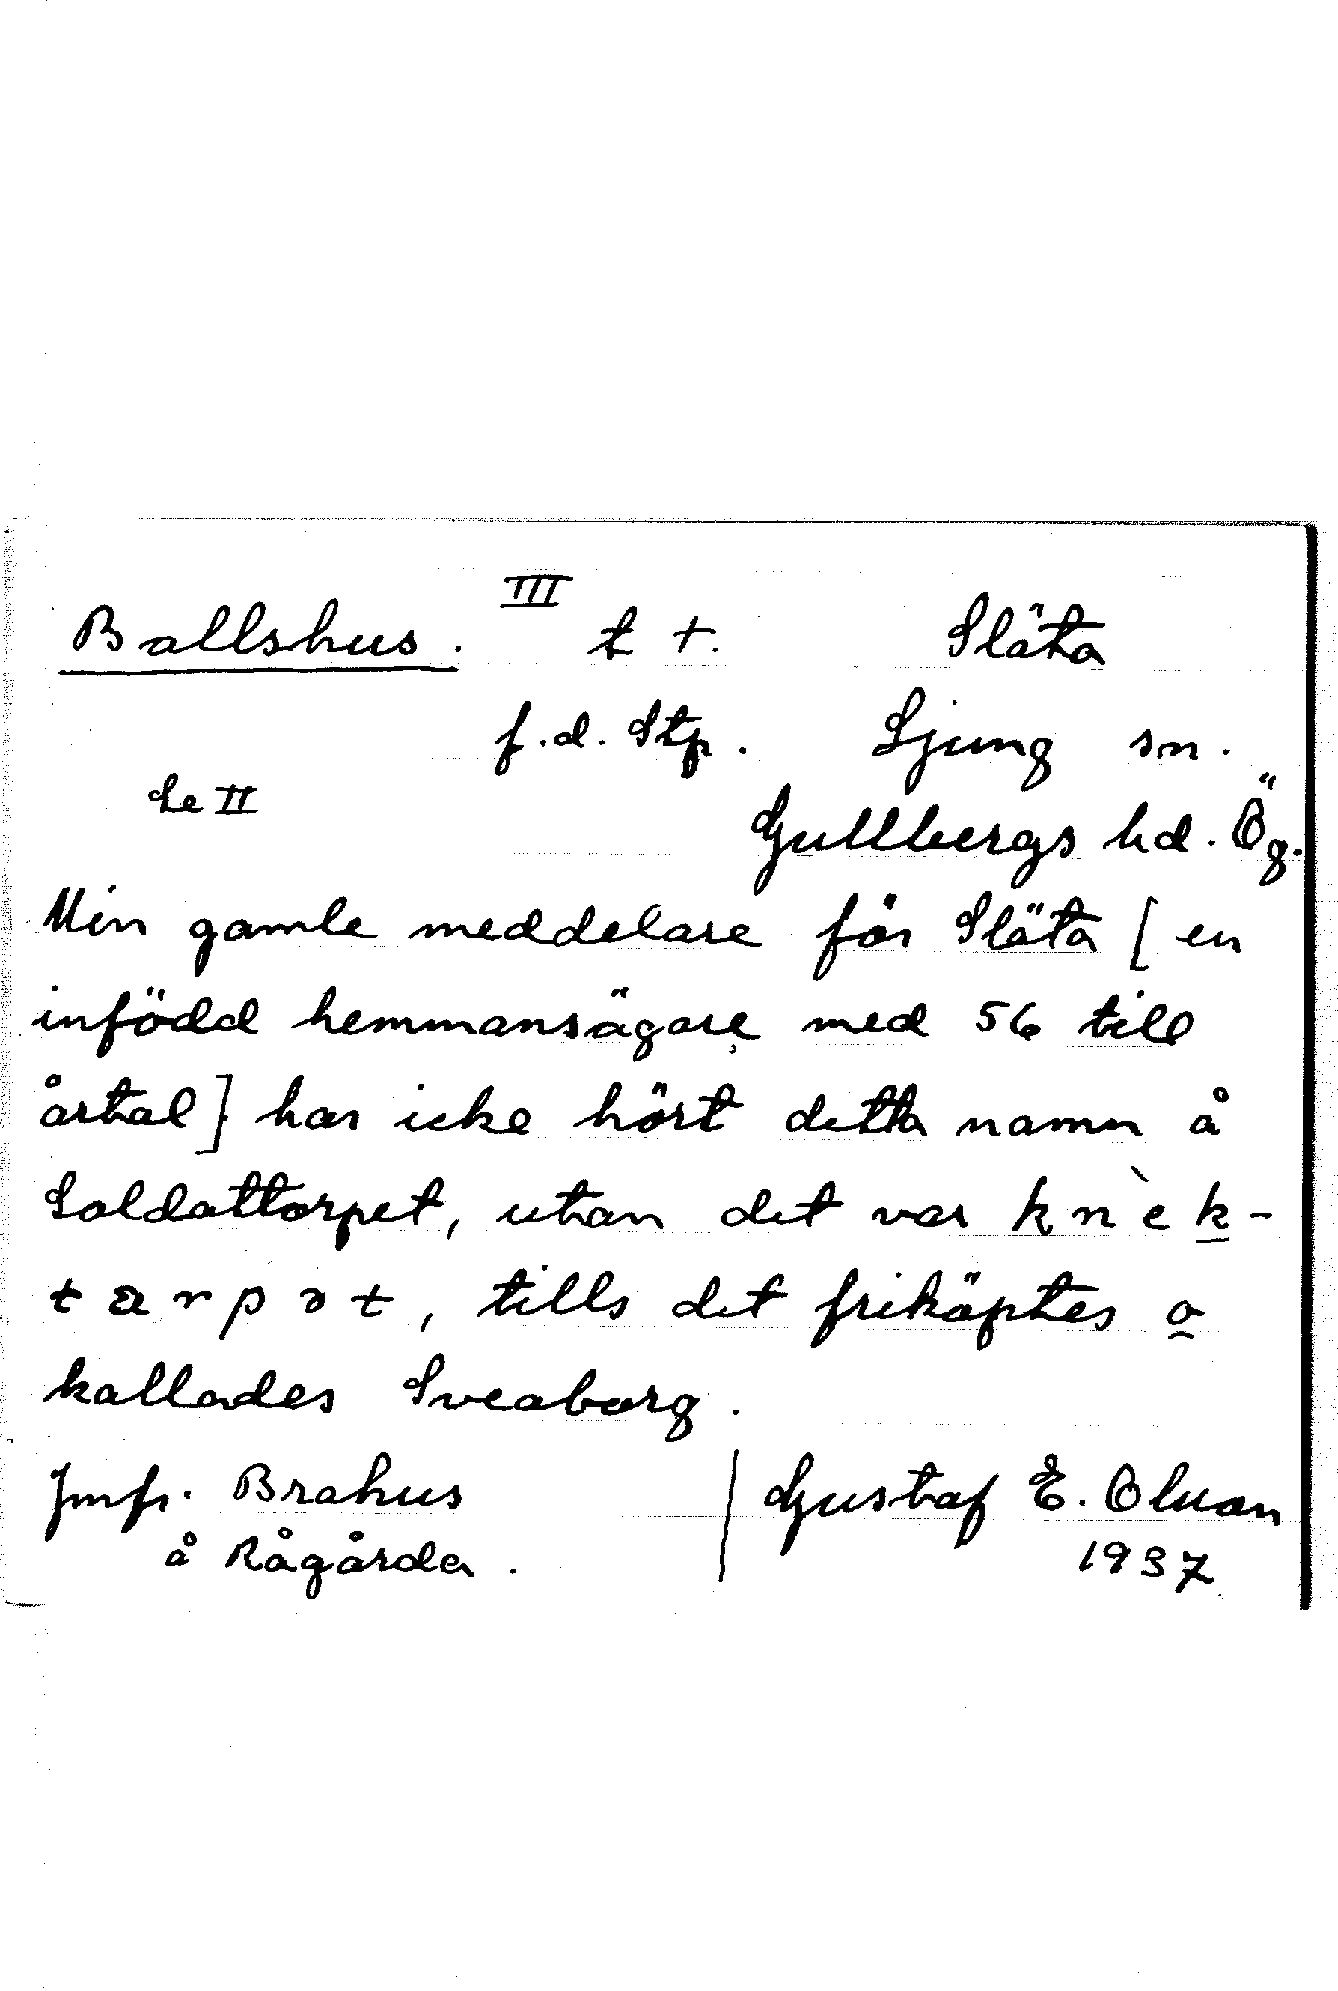 Ballshus. III t +. Släta
f.d. Stp. Ljung sn.
Le II
Gullbergs hd. Ög.
Min gamle meddelare för Släta [en
infödd hemmansägare med 56 till
årtal] har icke hört detta namn å
Soldattorpet, utan det var knèk-
tarpət, tills det friköptes o
kallades Sveaborg.
Jmfr. Brahus
å Rågårda.
Gustaf E. Olsson
1937